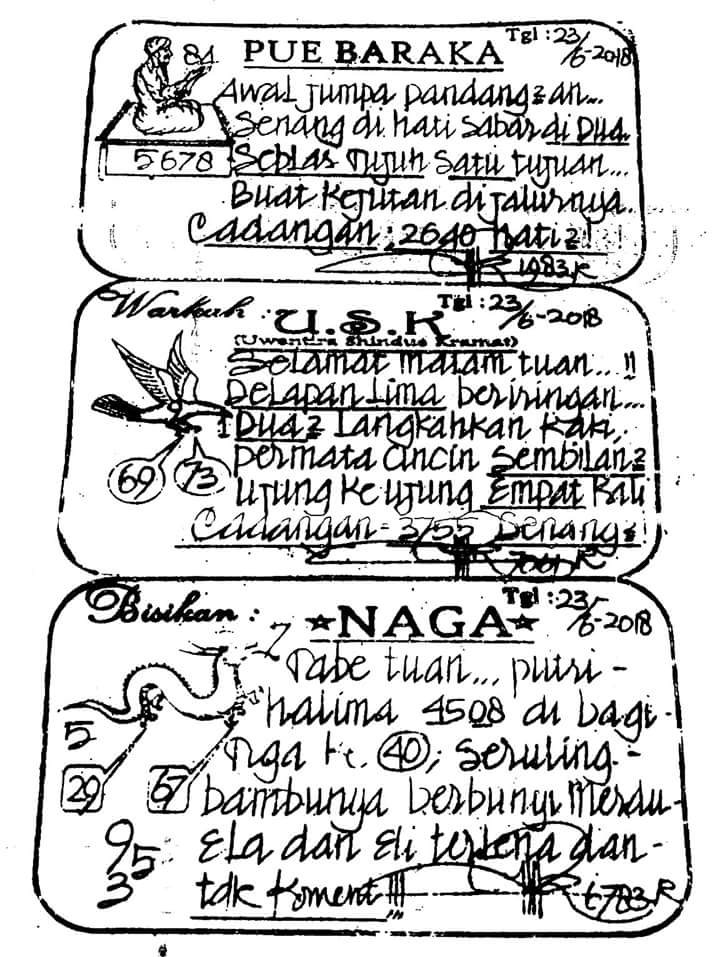 81 PUE BARAKA Tgl : 23/6-2018
Awal jumpa pandang2an...
Senang di hati sabar di Dua
5678 Seblas Tujuh Satu tujuan...
Buat Kejutan di jalurnya
Cadangan : 2640 hati2!
1983 R
Warkah : U.S.K Tgl : 23/6-2018
(Uwentira Shindue Kramat)
Selamat malam tuan.. !!
Delapan Lima beriringan...
1 Dua2 Langkahkan Kaki,
69 73 permata Cincin Sembilan2
ujung Ke ujung Empat Kali
Cadangan - 3755 Senang2
7001 R
Bisikan : ☆NAGA☆ Tgl : 23/6-2018
7 Tabe tuan... putri -
5 halima 4508 di bagi -
(40), Seruling -
29 67 bambunya berbunyi Merdu -
95 Ela dan Eli terlena dan -
3 tdk Koment !!!
6783 R